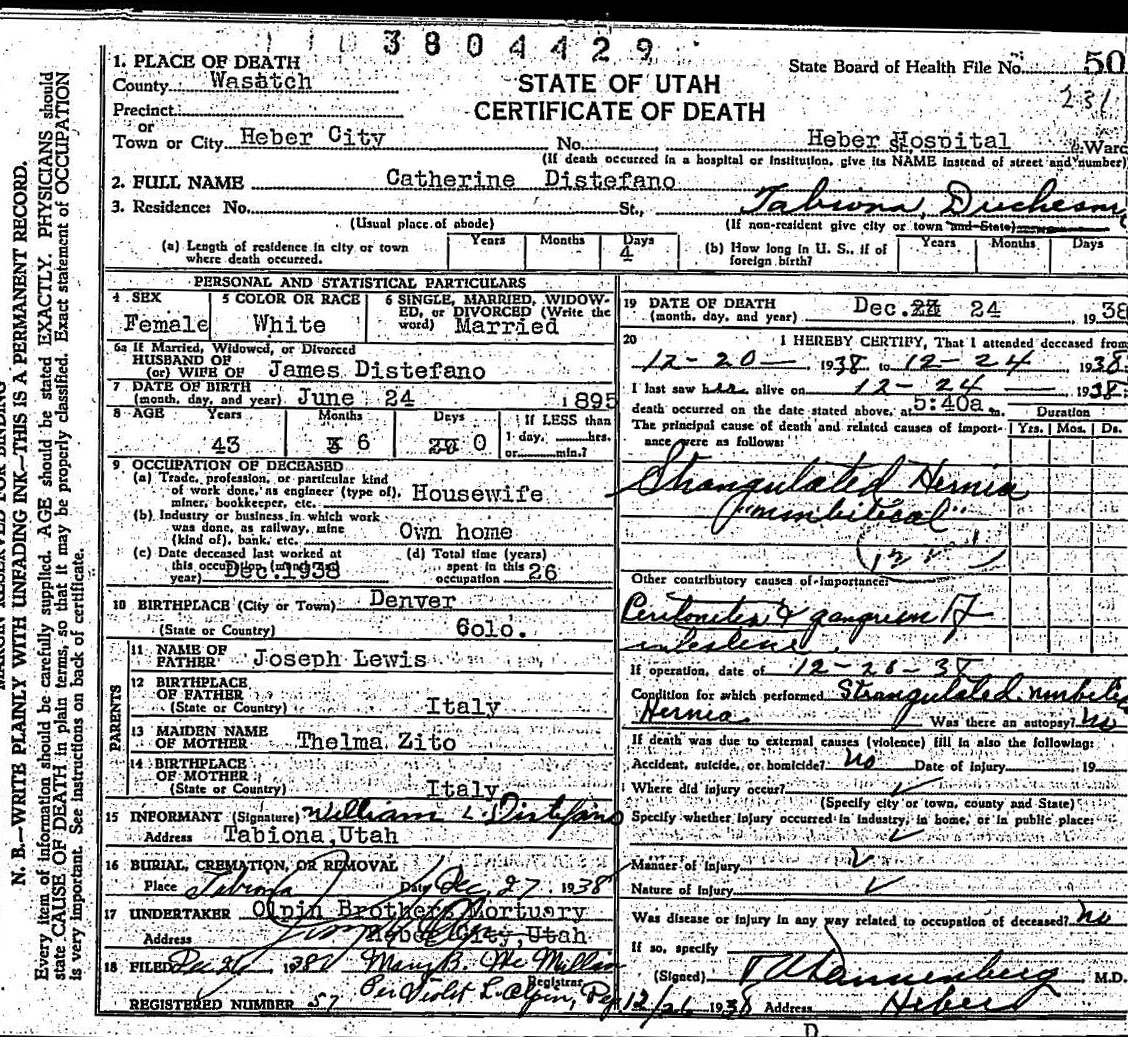 3804429
1. PLACE OF DEATH
State Board of Health File No. 50
County Wasatch
STATE OF UTAH
231
Precinct
CERTIFICATE OF DEATH
or
Town or City Heber City No. Heber Hospital St., Ward
(If death occurred in a hospital or institution, give its NAME instead of street and number)
2. FULL NAME Catherine Distefano
3. Residence: No. St., Tabiona, Duchesne
(Usual place of abode) (If non-resident give city or town and State)
(a) Length of residence in city or town where death occurred. Years Months Days 4
(b) How long in U. S., if of foreign birth? Years Months Days
PERSONAL AND STATISTICAL PARTICULARS
4 SEX Female
5 COLOR OR RACE White
6 SINGLE, MARRIED, WIDOWED, or DIVORCED (Write the word) Married
6a If Married, Widowed, or Divorced
HUSBAND OF
(or) WIFE OF James Distefano
7 DATE OF BIRTH
(month, day, and year) June 24 1895
8 AGE Years Months Days If LESS than
43 6 0 1 day, hrs.
or min.?
9 OCCUPATION OF DECEASED
(a) Trade, profession, or particular kind
of work done, as engineer (type of), Housewife
miner, bookkeeper, etc.
(b) Industry or business in which work
was done, as railway, mine
(kind of), bank, etc. Own home
(c) Date deceased last worked at
this occupation (month and
year) Dec. 1938
(d) Total time (years)
spent in this
occupation 26
10 BIRTHPLACE (City or Town) Denver
(State or Country) Colo.
PARENTS
11 NAME OF
FATHER Joseph Lewis
12 BIRTHPLACE
OF FATHER
(State or Country) Italy
13 MAIDEN NAME
OF MOTHER Thelma Zito
14 BIRTHPLACE
OF MOTHER
(State or Country) Italy
15 INFORMANT (Signature) William L. Distefano
Address Tabiona, Utah
16 BURIAL, CREMATION, OR REMOVAL
Place Tabiona Date Dec 27 1938
17 UNDERTAKER Olpin Brothers Mortuary
Address Heber City, Utah
18 FILED Dec 26 1938 Mary B. McMillan
Registrar
Per Violet L. Olpin, Dep
REGISTERED NUMBER 57
19 DATE OF DEATH
(month, day, and year) Dec. 24 1938
20 I HEREBY CERTIFY, That I attended deceased from
12-20- 1938 to 12-24 1938
I last saw her alive on 12-24 1938
death occurred on the date stated above, at 5:40a m.
The principal cause of death and related causes of importance were as follows:
Duration
Yrs. Mos. Ds.
Strangulated Hernia
"umbilical"
Other contributory causes of importance:
Peritonitis & gangrene of
intestine
If operation, date of
Condition for which performed Strangulated umbilical
Hernia Was there an autopsy? No
If death was due to external causes (violence) fill in also the following:
Accident, suicide, or homicide? No Date of injury 19
Where did injury occur?
(Specify city or town, county and State)
Specify whether injury occurred in industry, in home, or in public place:
Manner of Injury
Nature of Injury
Was disease or injury in any way related to occupation of deceased? No
If so, specify
(Signed) M.D.
12/26 1938 Address Heber
D
MARGIN RESERVED FOR BINDING
N. B.—WRITE PLAINLY WITH UNFADING INK—THIS IS A PERMANENT RECORD.
Every item of information should be carefully supplied. AGE should be stated EXACTLY. PHYSICIANS should
state CAUSE OF DEATH in plain terms, so that it may be properly classified. Exact statement of OCCUPATION
is very important. See instructions on back of certificate.